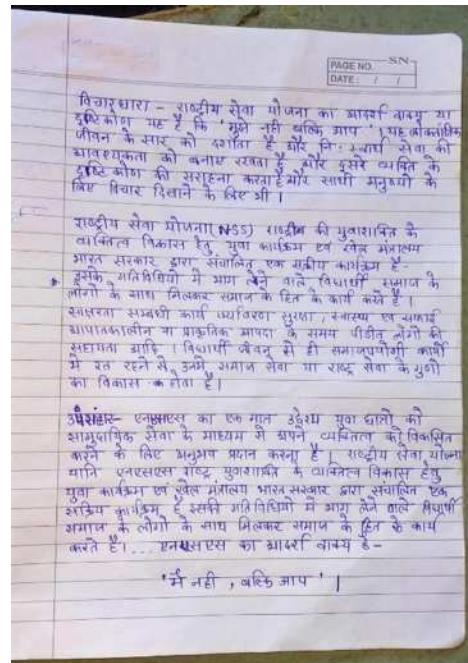 PAGE NO. SN
DATE: / /
विचारधारा - राष्ट्रीय सेवा योजना का आदर्श वाक्य या
दृष्टिकोण यह है कि 'मुझे नही बल्कि आप' । यह लोकतांत्रिक
जीवन के सार को दर्शाता है और नि: स्वार्थ सेवा की
आवश्यकता को बनाए रखता है और दुसरे व्यक्ति के
दृष्टि कोण की सराहना करता है और साथी मनुष्यो के
लिए विचार दिखाने के लिए भी ।
राष्ट्रीय सेवा योजना (NSS) राष्ट्रीय की युवाशक्ति के
व्यक्तित्व विकास हेतु, युवा कार्यक्रम एवं खेल मंत्रालय
भारत सरकार द्वारा संचालित एक सक्रीय कार्यक्रम है-
इसके गतिविधियो मे भाग लेने वाले विद्यार्थी समाज के
लोगो के साथ मिलकर समाज के हित के कार्य करते है ।
साक्षरता सम्बंधी कार्य पर्यावरण सुरक्षा, स्वास्थ्य एवं सफाई
आपातकालीन या प्राकृतिक आपदा के समय पीडीत लोगो की
सहायता आदि । विद्यार्थी जीवन से ही समाजपयोगी कार्यो
मे रत रहने से उनमे समाज सेवा या राष्ट्र सेवा के गुणो
का विकास होता है ।
उपसंहार- एनएसएस का एक मात्र उद्देश्य युवा छात्रो को
सामुदायिक सेवा के माध्यम से अपने व्यक्तित्व को विकसित
करने के लिए अनुभव प्रदान करना है । राष्ट्रीय सेवा योजना
यानि एनएसएस राष्ट्र युवाशक्ति के व्यक्तित्व विकास हेतु
युवा कार्यक्रम एवं खेल मंत्रालय भारत सरकार द्वारा संचालित एक
सक्रिय कार्यक्रम है इसकी गतिविधियो मे भाग लेने वाले विद्यार्थी
समाज के लोगो के साथ मिलकर समाज के हित के कार्य
करते है । ... एनएसएस का आदर्श वाक्य है -
'मै नही, बल्कि आप' ।